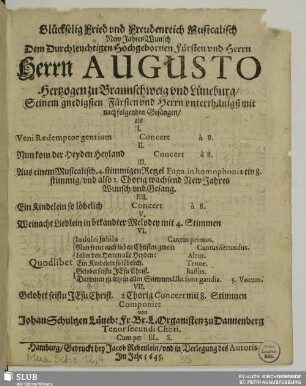 Glückselig Fried vnd Freudenreich Musicalisch
New Jahres Wunsch
Dem Durchleuchtigen Hochgebornen Fürsten vnd Herrn
Herrn AUGUSTO
Hertzogen zu Braunschweig vnd Lüneburg/
Seinem gnedigsten Fürsten vnd Herrn vnterthänigst mit
nachfolgenden Gesängen/
als
I.
Veni Redemptor gentium Concert à 8.
II.
Nun kom der Heyden Heyland Concert à 8.
III.
Aus einem Musicalisch. 4. stimmigen Retzel Fuga in homophonia ein 8.
stimmig/ vnd also 2. Chorig wachsend New Jahres
Wunsch vnd Gesang.
IIII.
Ein Kindelein so löbelich Concert à 8.
V.
Weinacht Liedlein in bekandter Melodey mit 4. Stimmen
VI.
In dulci jubilo Cantus primus.
Nun frewt euch lieben Christen gmein Cantus secundus.
Lobet den Herren alle Heyden: Altus.
Quodlibet Ein Kindelein so löbeleich. Tenor.
Gelobet seistu JEsu Christ. Bassus.
5. Vocum.
VII.
Gelobet seistu JEsu Christ. 2 Chorig Concert mit 8. Stimmen
Componirt
von
Johan Schultzen Lüneb: Fr. Br. L. Organisten zu Dannenberg
Tenor secundi Chori.
Com pr: EL. S.
Hamburg/ Gedruckt bey Jacob Rebenlein/ vnd in Verlegung des Autoris/
Im Jahr 1645.